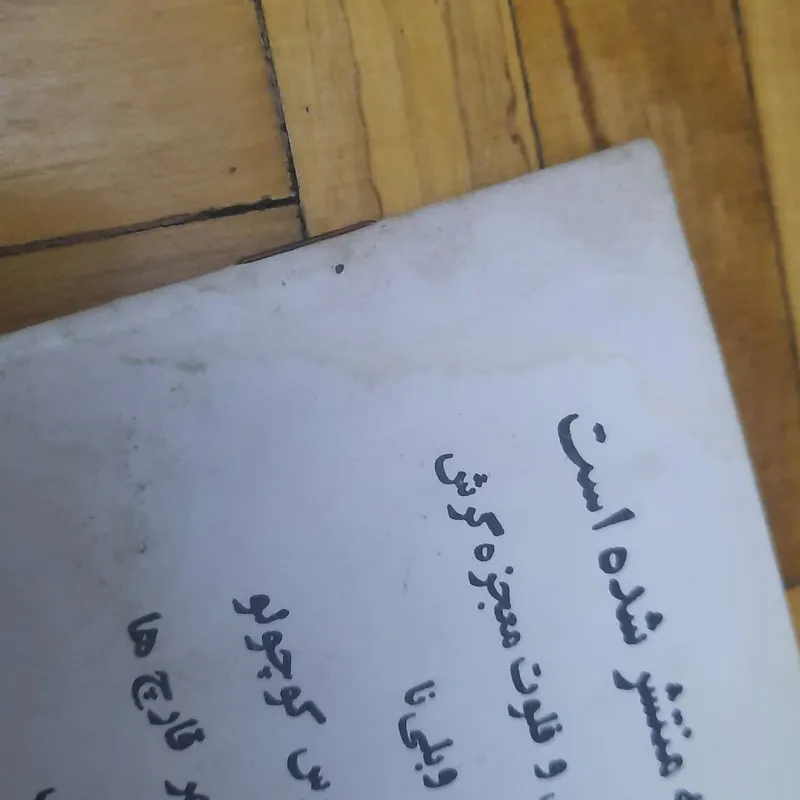 منتشر شده است
و فلوت معجزه گرش
ویلی نا
س کوچولو
ر قارچ ها